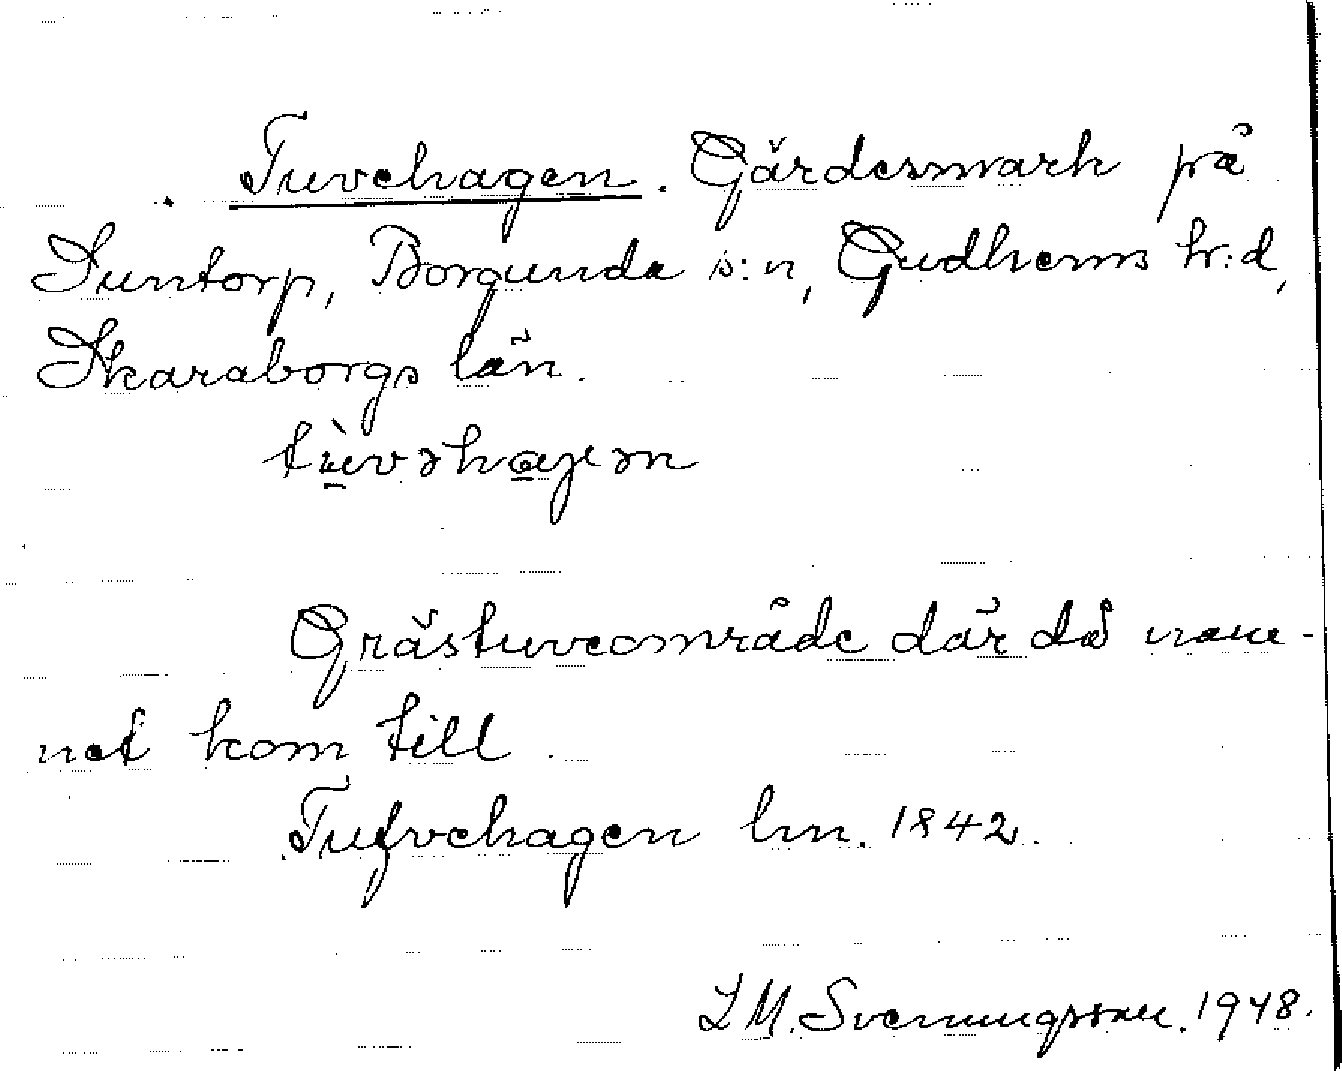 Tuvehagen. Gärdesmark på
Suntorp, Borgunda s:n, Gudhems h:d,
Skaraborgs län.
tùvəhaɡen
Grästuveområde där då nam-
net kom till.
Tufvehagen lm. 1842.
L M. Svenungsson. 1948.